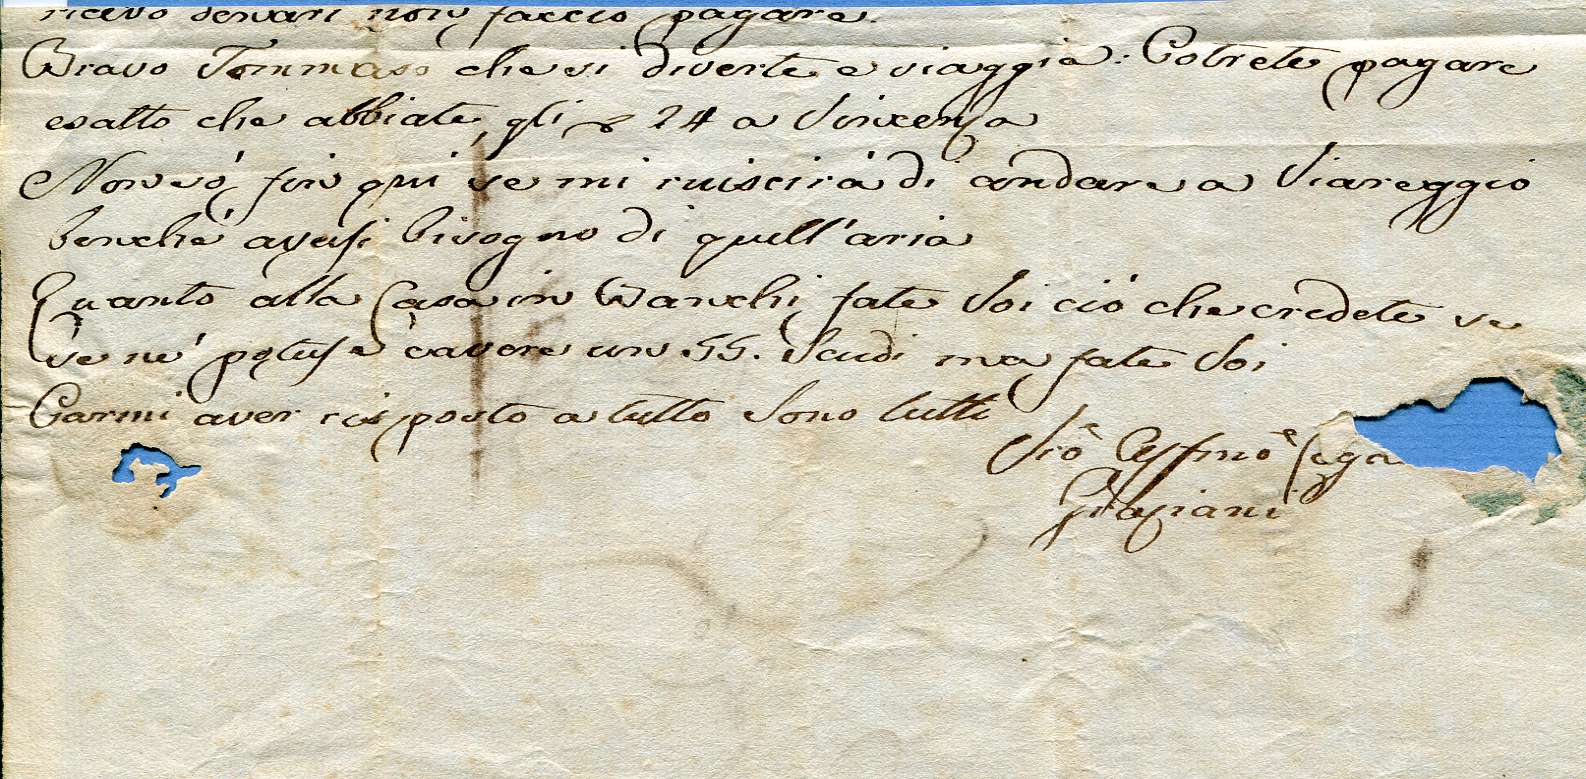 ricevo denari non faccio pagare.
Bravo Tommaso che si diverte e viaggia: Potrete pagare
esatto che abbiate gli 24 a Vincenza
Non só fin qui se mi riuscirà di andare a Viareggio
benché avessi bisogno di quell'aria
Quanto alla Casa in Banchi fate Voi ciò che credete se
se né potesse cavare un 55. Scudi ma fate Voi
Parmi aver risposto a tutto Sono tutti
Affmo
Graziani